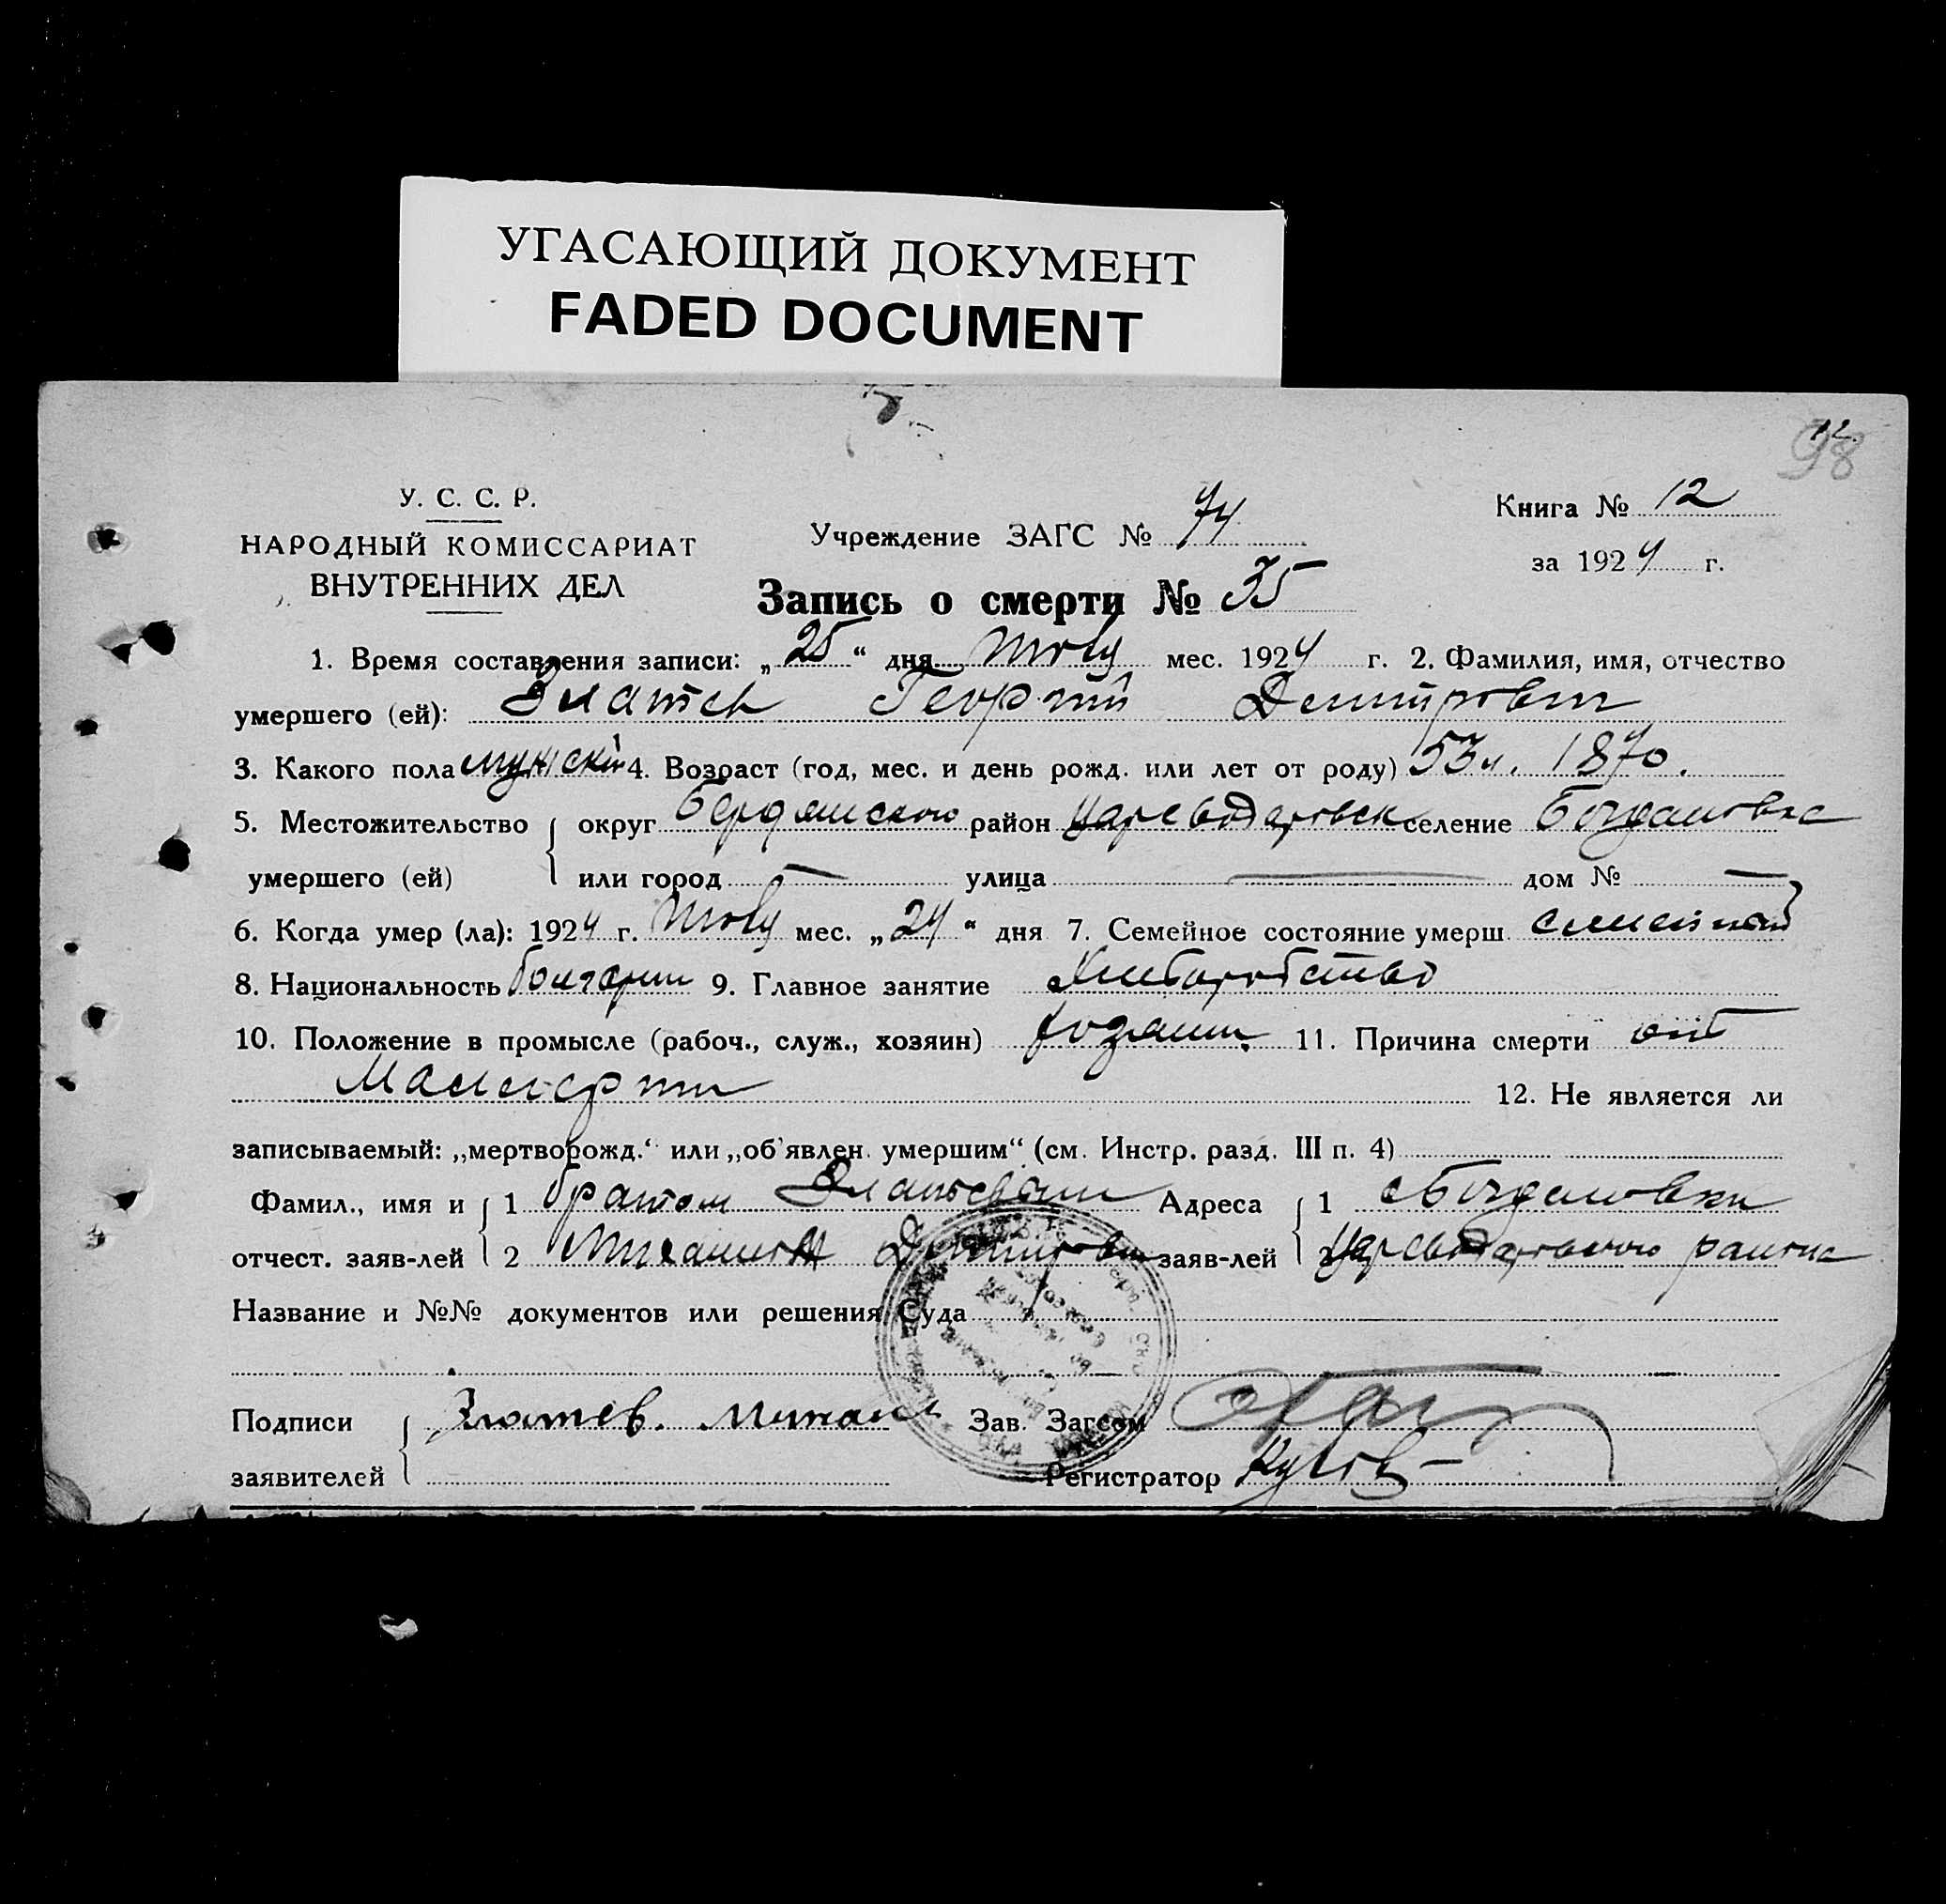 УГАСАЮЩИЙ ДОКУМЕНТ
FADED DOCUMENT
12.
98
У. С. С. Р.
НАРОДНЫЙ КОМИССАРИАТ
ВНУТРЕННИХ ДЕЛ
Учреждение ЗАГС № 74
Книга № 12
за 1924 г.
Запись о смерти № 35
1. Время составления записи: „25“ дня мес. 1924 г. 2. Фамилия, имя, отчество
умершего (ей): Златев Георгий Дмитрович
3. Какого пола мужский 4. Возраст (год, мес. и день рожд. или лет от роду) 53 л. 1870.
5. Местожительство округ Бердянского район Цареводаровск селение Богдановка
умершего (ей) или город — улица — дом № —
6. Когда умер (ла): 1924 г. мес. „24“ дня 7. Семейное состояние умерш. семейный
8. Национальность болгарин 9. Главное занятие Хлеборобство
10. Положение в промысле (рабоч., служ., хозяин) хозяин. 11. Причина смерти от
Малярии
12. Не является ли
записываемый: „мертворожд.“ или „об'явлен умершим“ (см. Инстр. разд. III п. 4)
Фамил., имя и 1 братом Златевым Адреса 1 с Богдановки
отчест. заяв-лей 2 Михаилом Дмитрович заяв-лей 2 Цареводаровского района
Название и №№ документов или решения Суда
Подписи Златев. Михаил Зав. Загсом
заявителей Регистратор